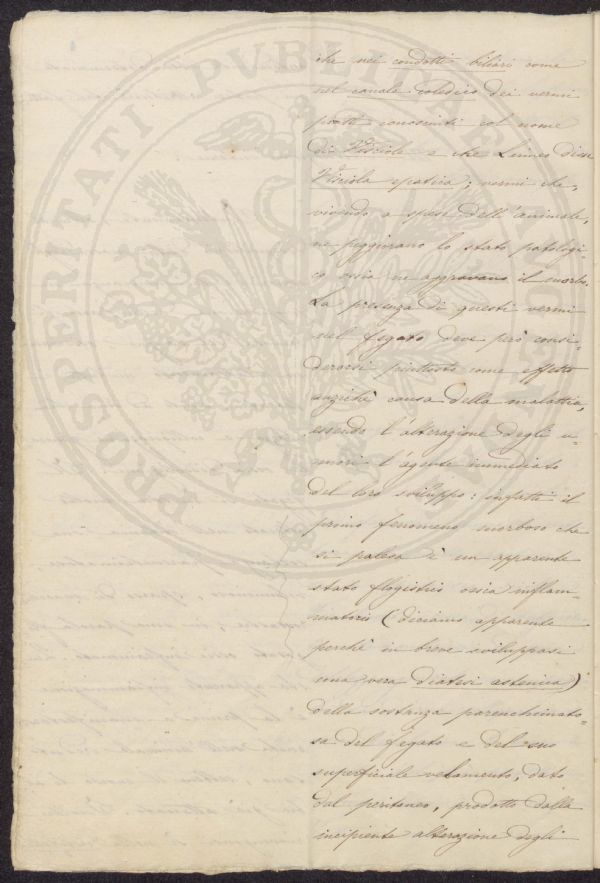 che nei condotti biliari come
nel canale coledico dei vermi
piatti conosciuti col nome
di Visciole e che Linneo disse
Visciola epatica; vermi che,
vivendo a spese dell'animale,
ne peggiorano lo stato patologi-
co ossia ne aggravano il morbo.
La presenza di questi vermi
nel fegato deve però consi-
derarsi piuttosto come effetto
anzichè causa della malattia,
essendo l'alterazione degli u-
mori l'agente immediato
del loro sviluppo: infatti il
primo fenomeno morboso che
si palesa è un apparente
stato flogistico ossia inflam-
matorio (diciamo apparente
perchè in breve sviluppasi
una vera diatesi astenica)
della sostanza parenchimato-
sa del fegato e del suo
superficiale velamento, dato
dal peritoneo, prodotto dalla
incipiente alterazione degli
PROSPERITATI PVBLICAE AVGENDAE